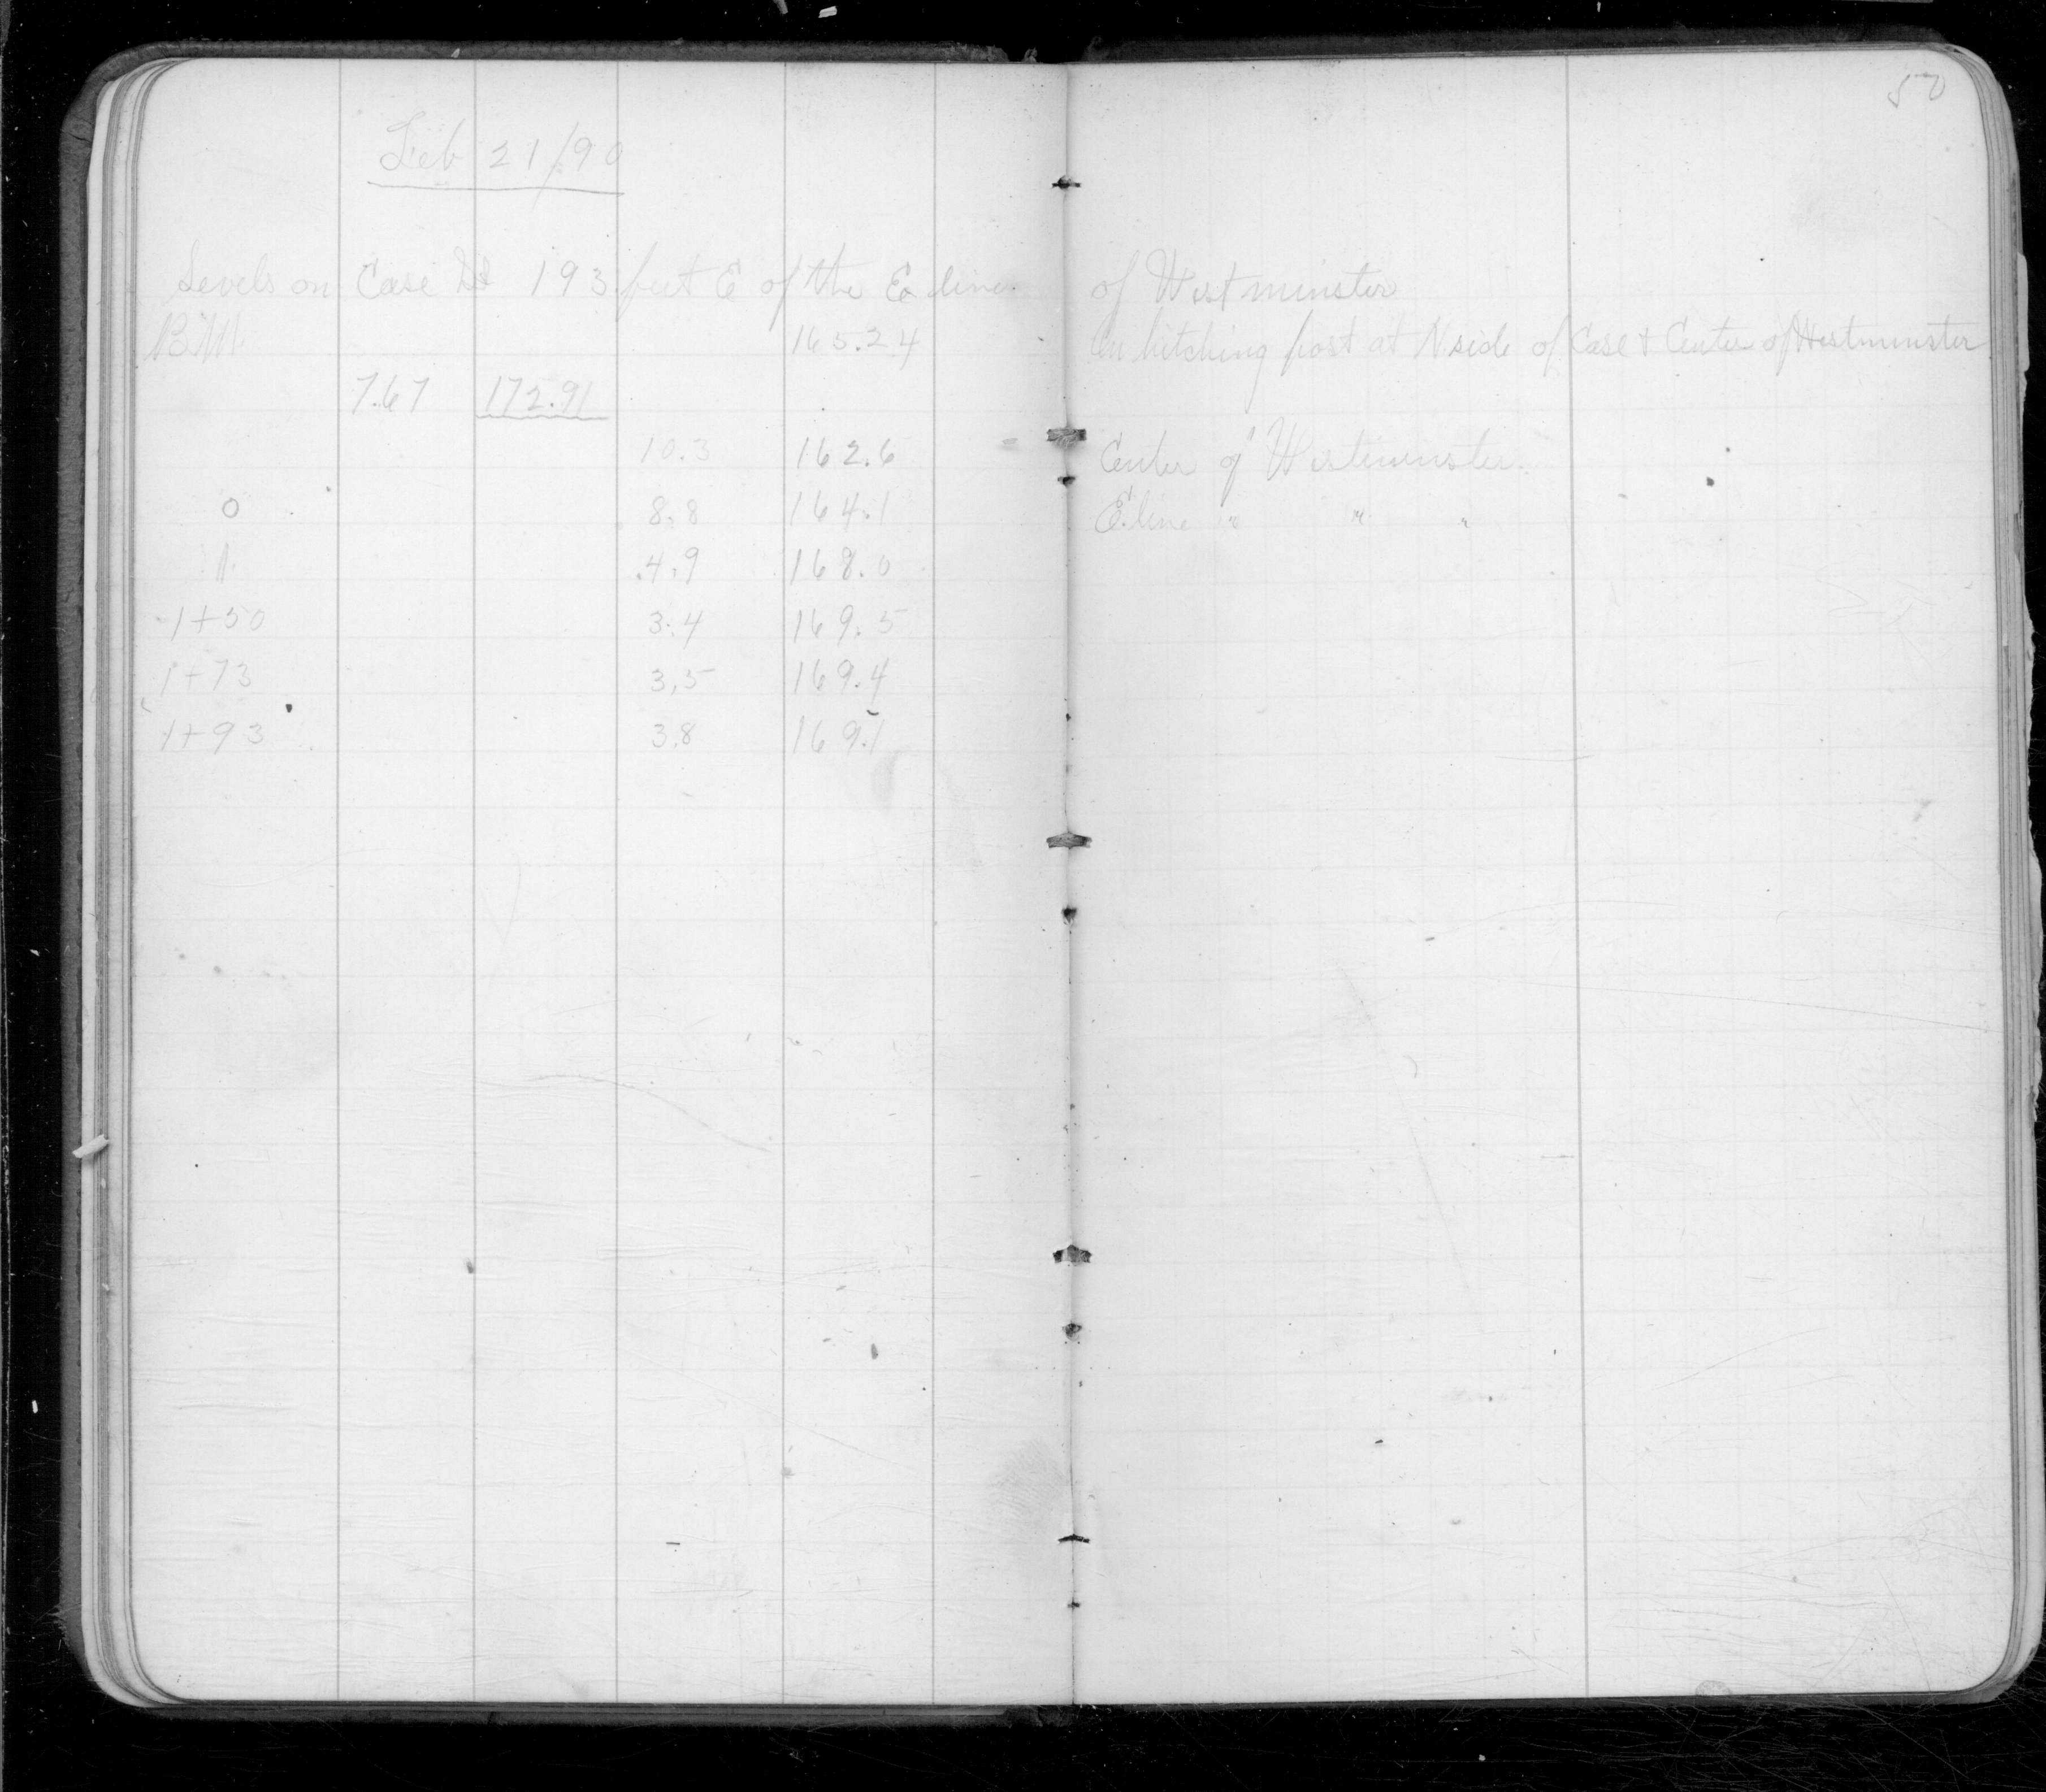 50
Feb 21/90
Levels on Case St 193 feet E of the E. line of Westminster
B.M. 165.24 On hitching post at N side of Case & Center of Westminster
7.67 172.91
10.3 162.6 Center of Westminster
0 8.8 164.1 E. line " " "
1 4.9 168.0
1+50 3.4 169.5
1+73 3.5 169.4
1+93 3.8 169.1